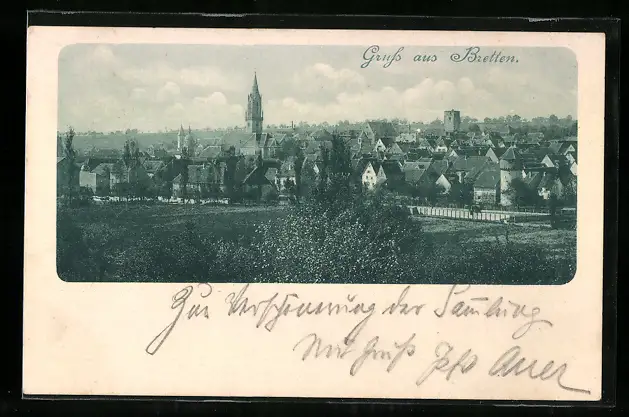 Gruß aus Bretten.
Zur Verschönerung der Samlung
Mit Gruß Auer